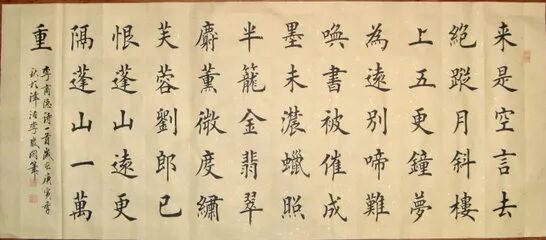 来是空言去
絕蹤月斜樓
上五更鐘夢
為遠別啼難
喚書被催成
墨未濃蠟照
半籠金翡翠
麝薰微度繡
芙蓉劉郎已
恨蓬山遠更
隔蓬山一萬
重
李商隐詩一首歲在庚寅季
秋於津沽李